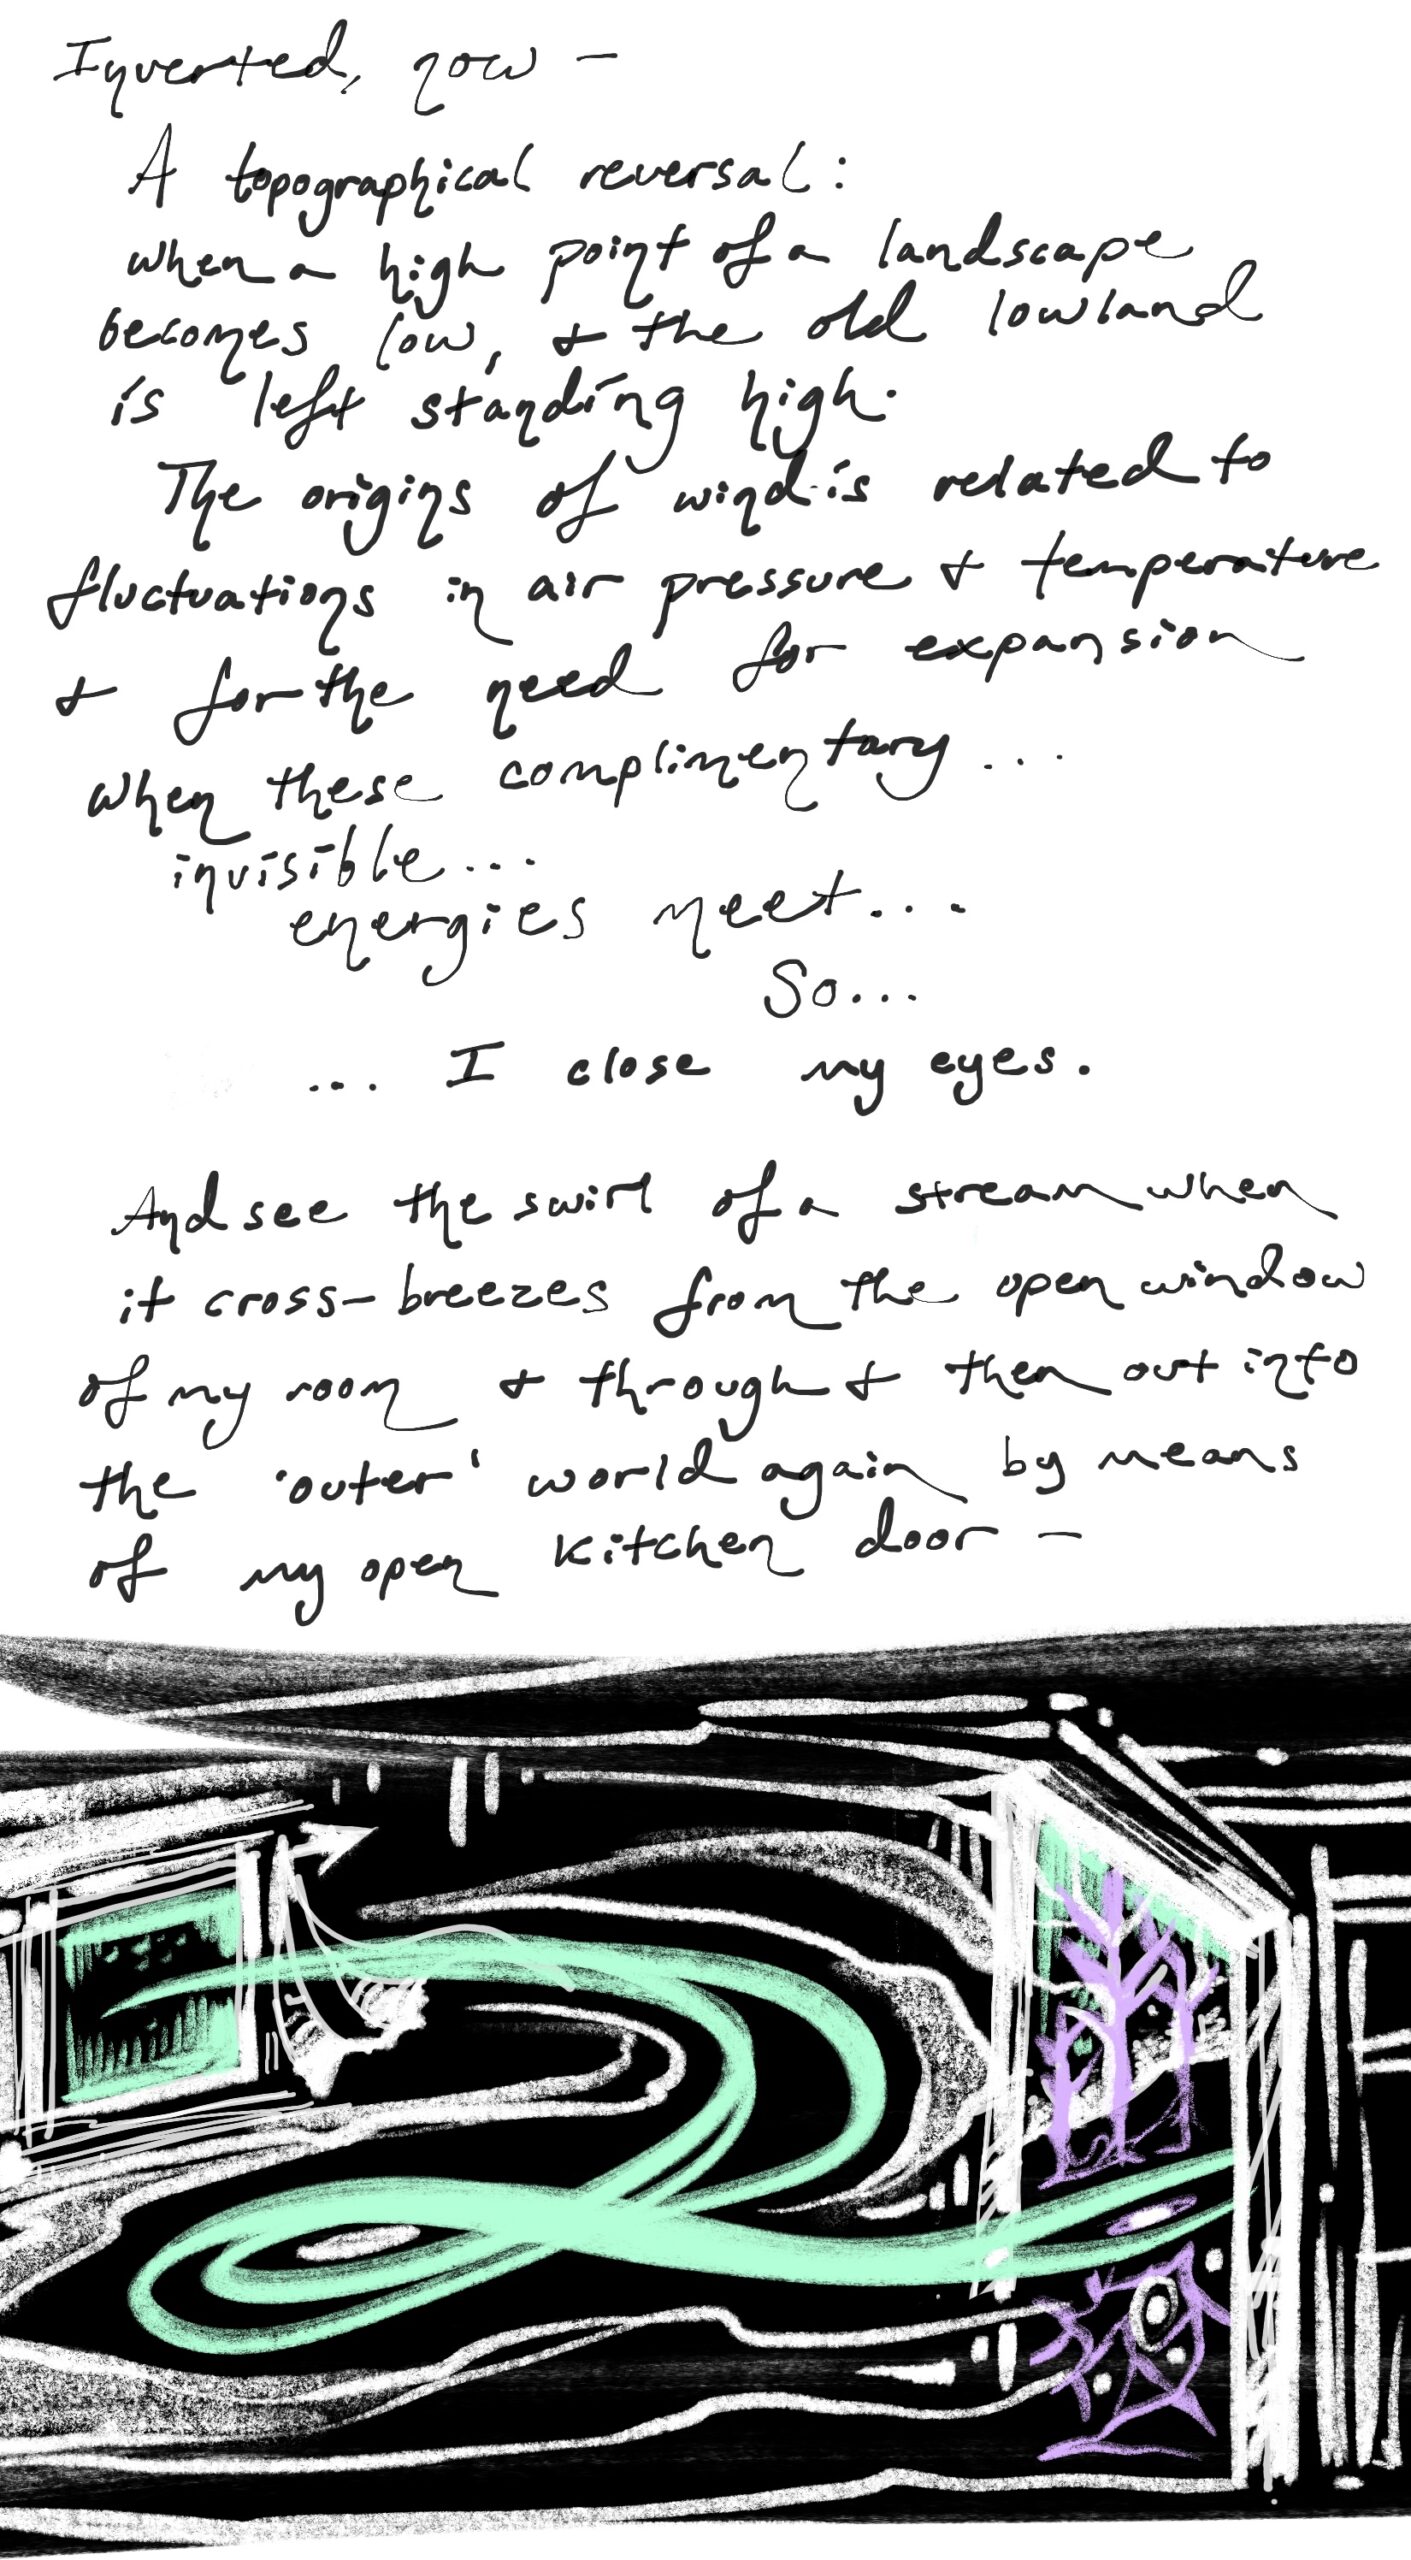 Inverted, now –
A topographical reversal:
when a high point of a landscape
becomes low, & the old lowland
is left standing high.
The origins of wind is related to
fluctuations in air pressure & temperature
& for the need for expansion
when these complimentary ...
invisible...
energies meet...
So...
... I close my eyes.
And see the swirl of a stream when
it cross-breezes from the open window
of my room & through & then out into
the 'outer' world again by means
of my open kitchen door –